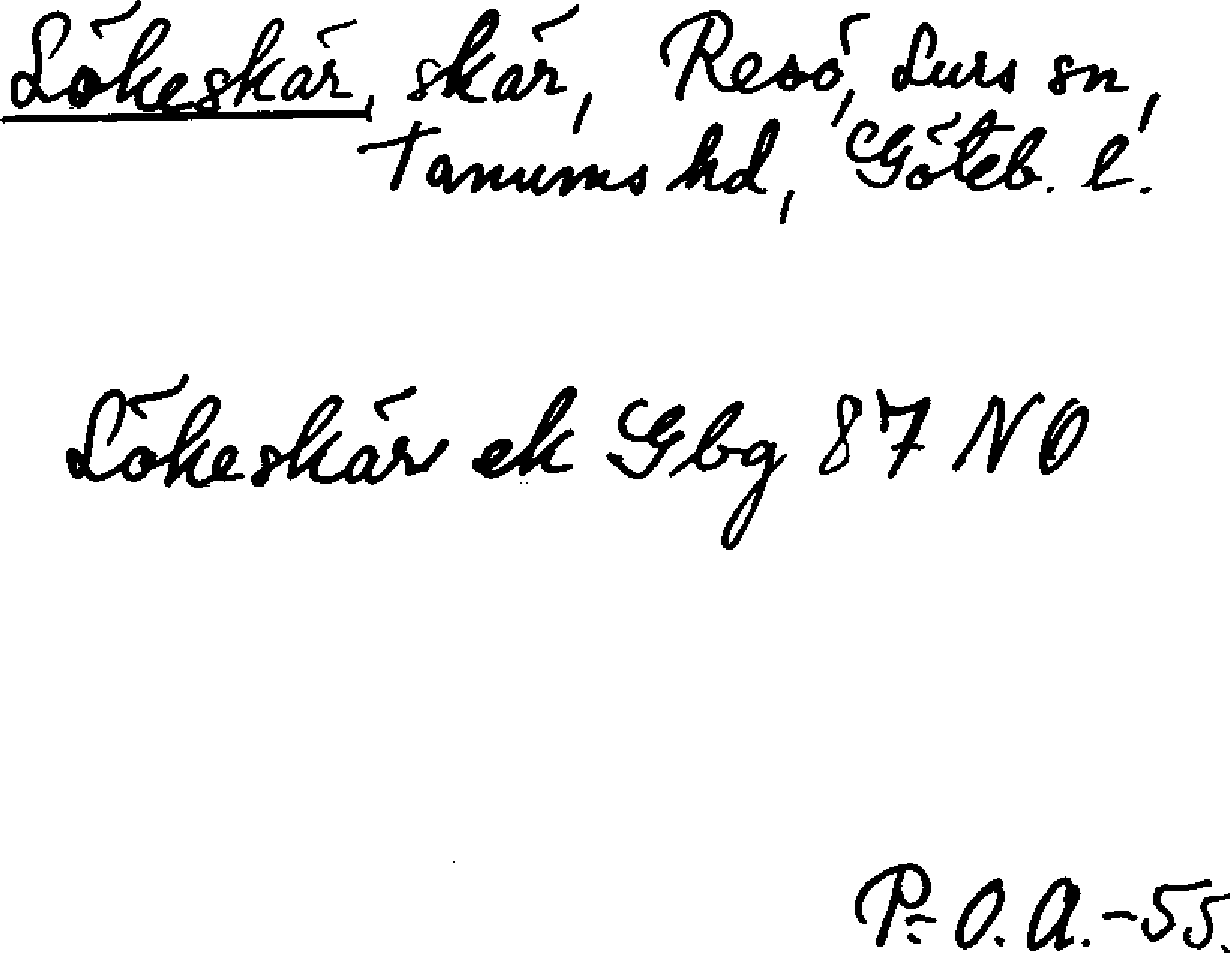 Lökeskär, skär, Resö, Lurs sn,
Tanums hd, Göteb. l.
Lökeskär ek Gbg 87 NO
P-O.A.-55.